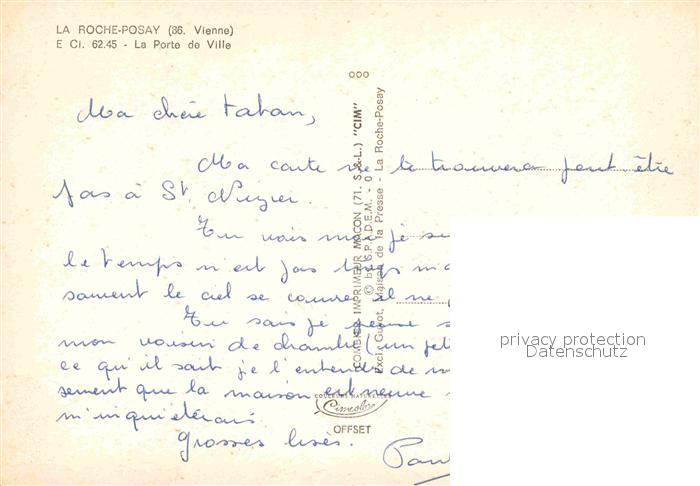 LA ROCHE-POSAY (86. Vienne)
E Ci. 62.45 - La Porte de Ville
Ma chère
Ma carte ne te trouvera peut être
pas à St. Nizier.
Tu vois moi je
le temps n'est pas trop
souvent le ciel se couvre, il ne
Tu sais je pense
mon voisin de chambre (un
ce qu'il sait je l'entends de
sement que la maison est neuve
m'inquiéterais.
Grosses bises.
COMBIER IMPRIMEUR MACON (71. S.-&-L.) "CIM"
© by S.P.A.D.E.M. - 0
Excl. Guyot, Maison de la Presse - La Roche-Posay
COULEURS NATURELLES
Cimcolor
OFFSET
privacy protection
Datenschutz